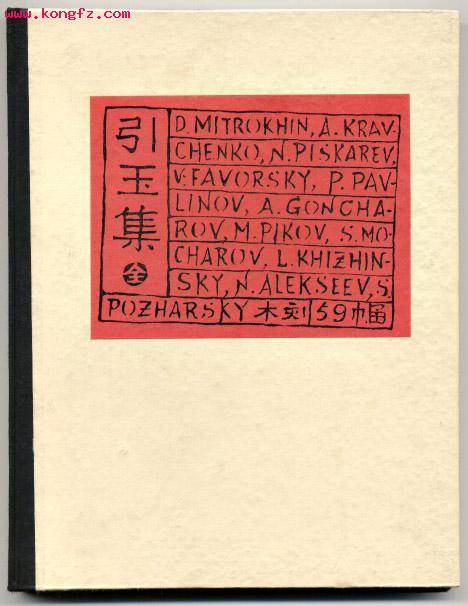 www.kongfz.com
引玉集
全
D. MITROKHIN, A. KRAV-
CHENKO, N. PISKAREV,
V. FAVORSKY, P. PAV-
LINOV, A. GONCHA-
ROV, M. PIKOV, S. MO-
CHAROV, L. KHIZHIN-
SKY, N. ALEKSEEV, S.
POZHARSKY 木刻59幅